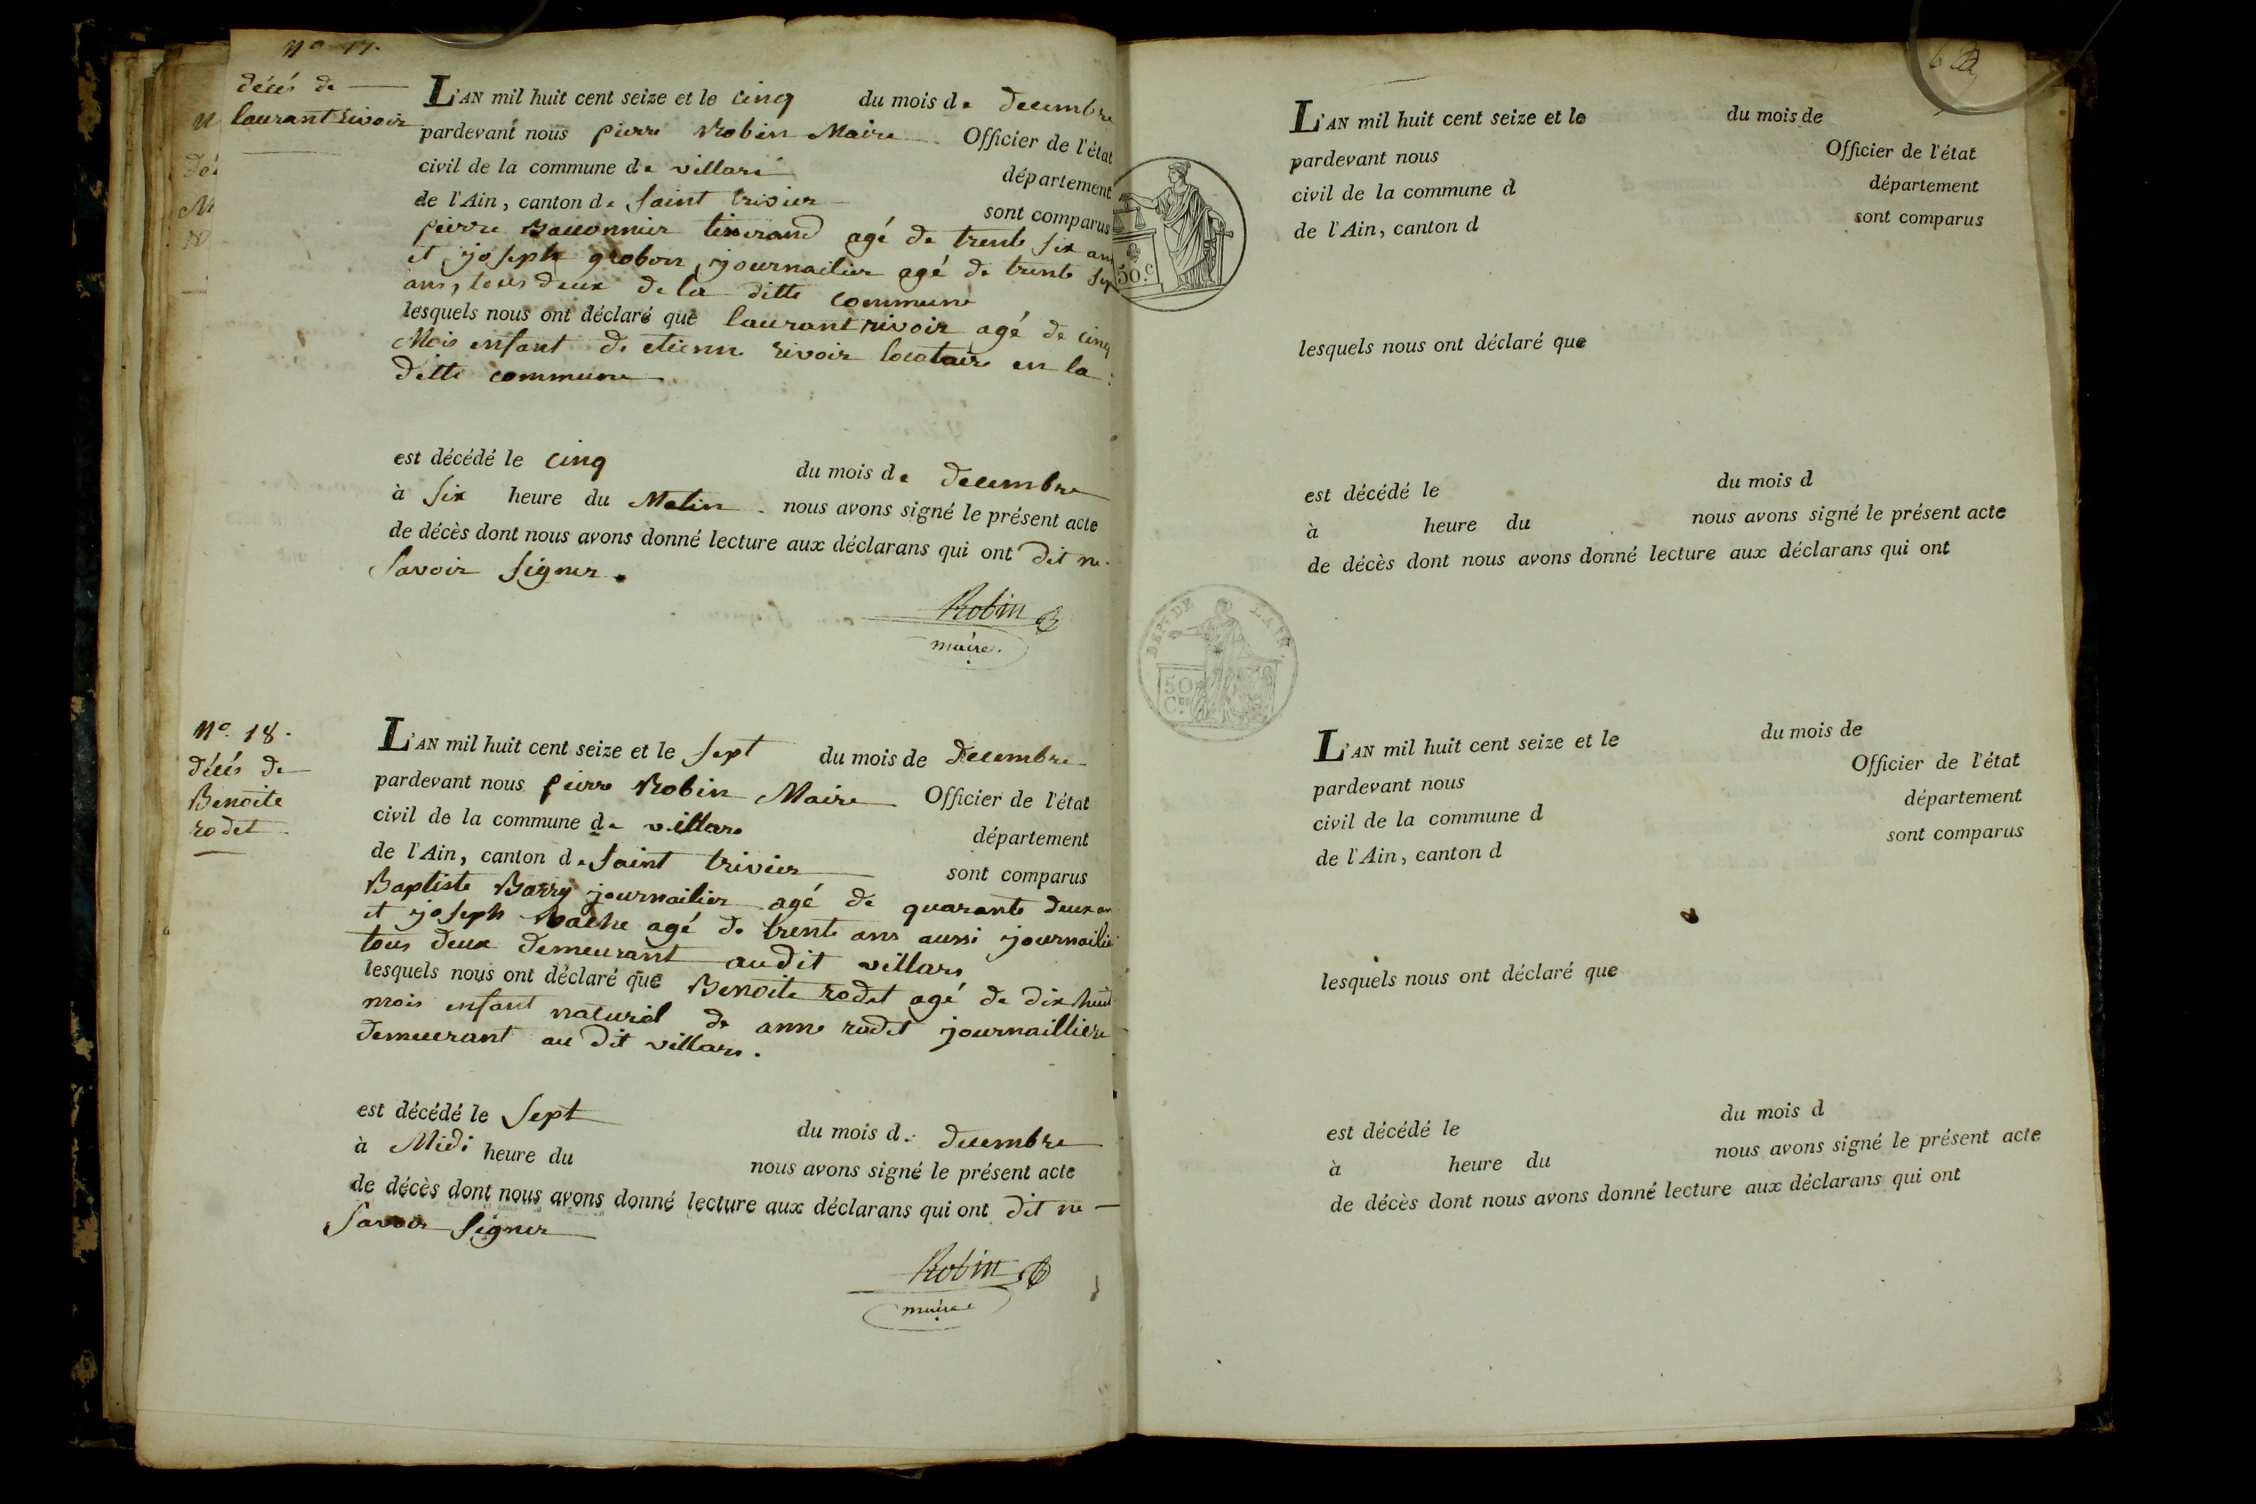 N° 17.
décés de
laurant rivoir
L'AN mil huit cent seize et le cinq du mois de decembre
pardevant nous pierre Robin Maire Officier de l'état
civil de la commune de villars département
de l'Ain, canton de saint trivier sont comparus
pierre tisserand agé de trente six ans
et joseph grobon, journailier agé de trente sep
ans, tous deux de la ditte commune
lesquels nous ont déclaré que laurant rivoir agé de cinq
Mois enfant de etienne rivoir locataire en la
ditte commune
est décédé le cinq du mois de decembre
à six heure du Matin nous avons signé le présent acte
de décès dont nous avons donné lecture aux déclarans qui ont dit ne
savoir signer.
Robin
maire.
N° 18.
décés de
Benoite
rodet
L'AN mil huit cent seize et le sept du mois de decembre
pardevant nous pierre Robin Maire Officier de l'état
civil de la commune de villars département
de l'Ain, canton de saint trivier sont comparus
Baptiste Barry journailier agé de quarante deux an
et joseph vache agé de trente ans aussi journailie
tous deux demeurant audit villars
lesquels nous ont déclaré que Benoite rodet agé de dix huit
mois enfant naturel de anne rodet journailliere
demeurant au dit villars.
est décédé le sept du mois de decembre
à Midi heure du nous avons signé le présent acte
de décès dont nous avons donné lecture aux déclarans qui ont dit ne
savoir signer
Robin
maire
50.c
DEP. DE L'AIN.
50
C.es
L'AN mil huit cent seize et le du mois de
pardevant nous Officier de l'état
civil de la commune d département
de l'Ain, canton d sont comparus
lesquels nous ont déclaré que
est décédé le du mois d
à heure du nous avons signé le présent acte
de décès dont nous avons donné lecture aux déclarans qui ont
L'AN mil huit cent seize et le du mois de
pardevant nous Officier de l'état
civil de la commune d département
de l'Ain, canton d sont comparus
lesquels nous ont déclaré que
est décédé le du mois d
à heure du nous avons signé le présent acte
de décès dont nous avons donné lecture aux déclarans qui ont